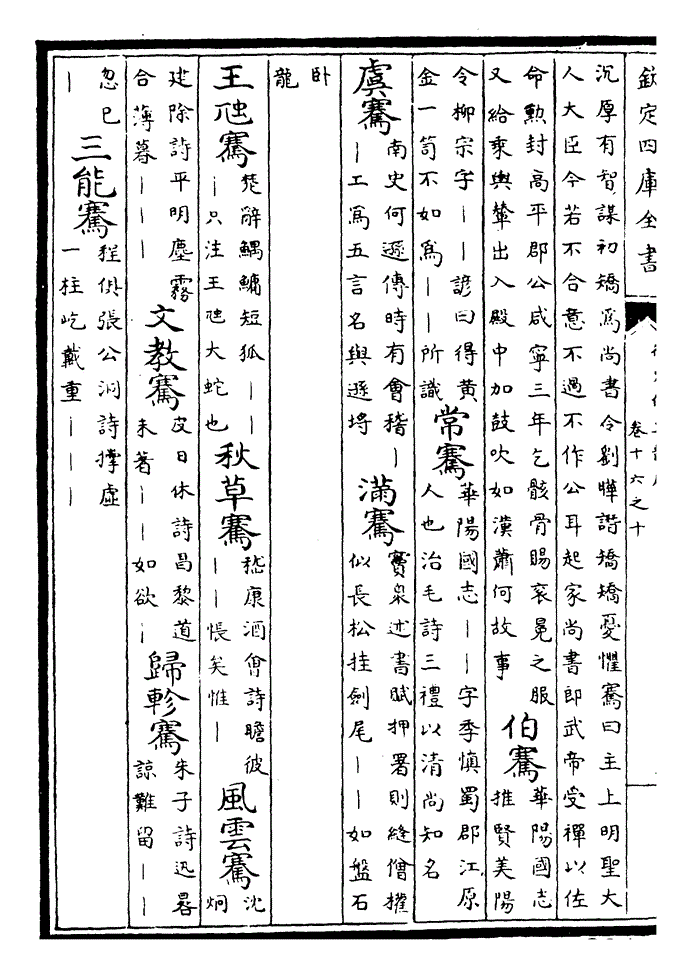 欽定四庫全書
卷十六之十
沉厚有智謀初矯爲尚書令劉曄譖矯矯憂懼騫曰主上明聖大
人大臣今若不合意不過不作公耳起家尚書郎武帝受禪以佐
命勲封高平郡公咸寧三年乞骸骨賜衮冕之服
又給乘輿輦出入殿中加鼓吹如漢蕭何故事
伯騫
華陽國志
推賢美陽
令柳宗字——諺曰得黄
金一笥不如爲——所識
常騫
華陽國志——字季慎蜀郡江原
人也治毛詩三禮以清尚知名
虞騫
南史何遜傳時有會稽—
—工爲五言名與遜埒
滿騫
竇臮述書賦押署則縫僧攉
似長松挂劍尾——如盤石
卧
龍
王虺騫
楚辭鰅鱅短狐——
—只注王虺大蛇也
秋草騫
嵇康酒會詩瞻彼
——悵矣惟—
風雲騫
沈
炯
建除詩平明塵霧
合薄暮———
文教騫
皮日休詩昌黎道
未著——如欲—
歸軫騫
朱子詩迅晷
諒難留——
忽已
—
三能騫
程俱張公洞詩撐虛
一柱屹戴重———